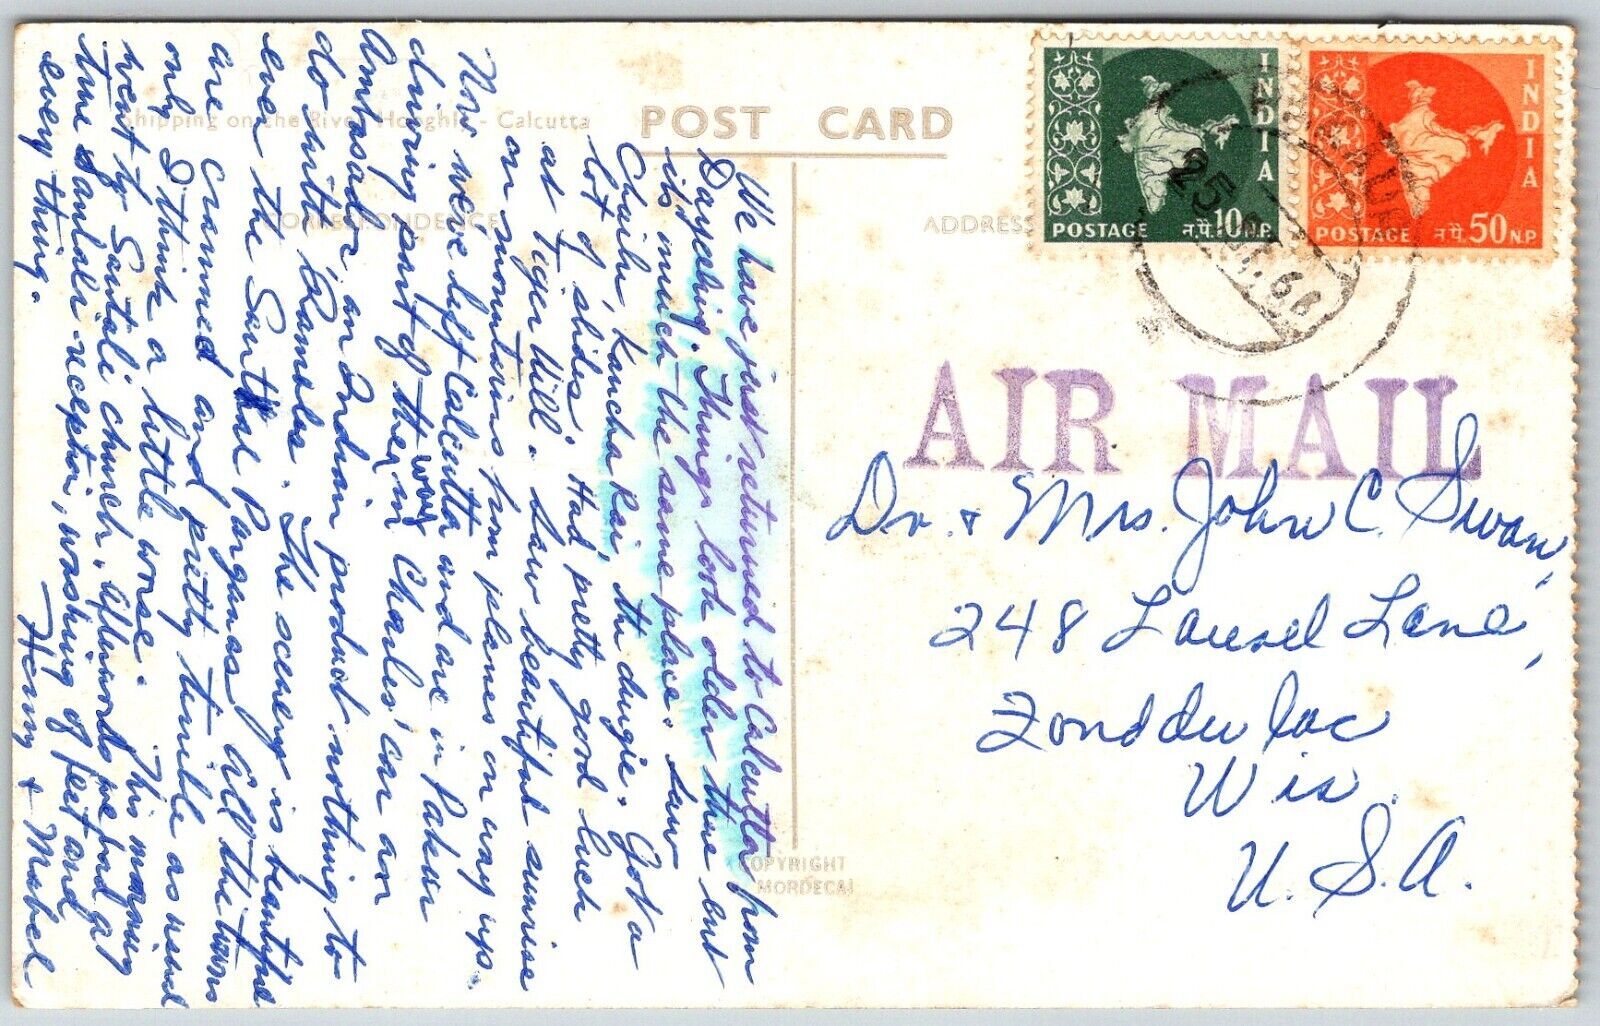 Shipping on the River Hooghly - Calcutta
POST CARD
CORRESPONDENCE
ADDRESS
INDIA
POSTAGE न.पै. 10 N.P.
INDIA
POSTAGE न.पै. 50 N.P.
25
AIR MAIL
Dr. & Mrs. John C. Swan,
248 Laurel Lane,
Fond du Lac
Wis.
U.S.A.
COPYRIGHT
MORDECAI
We have just returned to Calcutta from
Darjeeling. Things look older there but
its much the same place. Saw
Chaile, Kancha Rai, the durgie. Got a
lot of slides. Had pretty good luck
at Tiger Hill. Saw beautiful sunrise
on mountains from planes on way up.
Now we've left Calcutta and are in Pakur
driving sort of the in way Charles' car an
Ambasador, an Indian product nothing to
do with 'Rambler'. The scenery is beautiful
over the Santhal Parganas. All the towns
are crammed and pretty terrible as usual
only I think a little worse. This morning
went to Santali church. Afterwards we had a
true Santali reception, washing of feet and
every thing.
Henry & Mabel